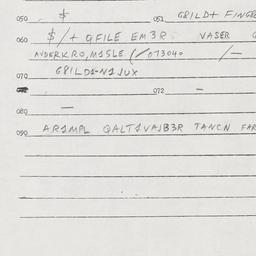 050 $ 051 G8ILD+ FINGE
060 $/+ QFILE EM3R VASER
ANDERKRO,MISLE (/073040 /—
070 G8ILD1-N1JUX
072 —
080 —
090 AR1MPL QALT1VAJB3R TANCN FAR